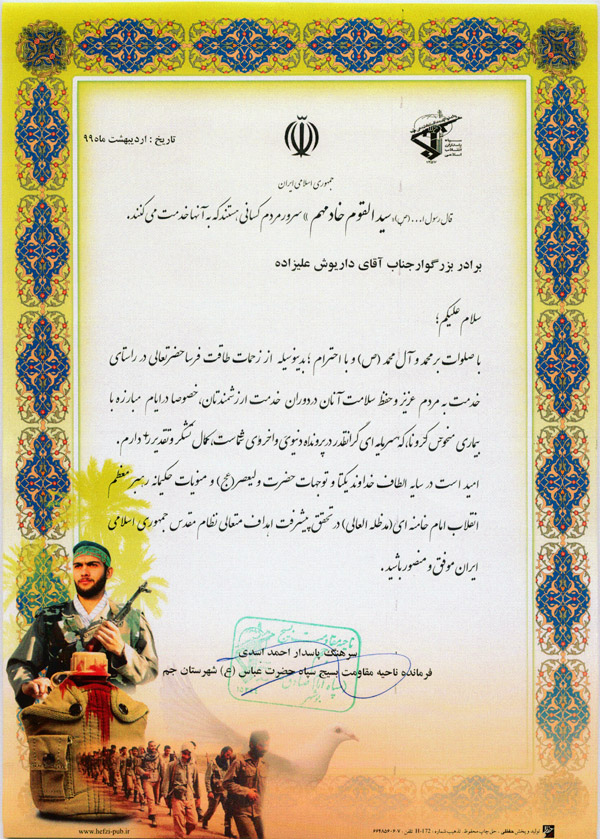 سپاه
پاسداران
انقلاب
اسلامی
تاریخ : اردیبهشت ماه ۹۹
جمهوری اسلامی ایران
قال رسول ا... (ص): سید القوم خادمهم » سرور مردم کسانی هستند که به آنها خدمت می کنند.
برادر بزرگوار جناب آقای داریوش علیزاده
سلام علیکم؛
با صلوات بر محمد و آل محمد (ص) و با احترام ؛ بدینوسیله از زحمات طاقت فرسا حضرتعالی در راستای
خدمت به مردم عزیز و حفظ سلامت آنان در دوران خدمت ارزشمندتان، خصوصا در ایام مبارزه با
بیماری منحوس کرونا، که سرمایه ای گرانقدر در پرونده دنیوی و اخروی شماست، کمال تشکر و تقدیر را دارم.
امید است در سایه الطاف خداوند یکتا و توجهات حضرت ولیعصر(عج) و منویات حکیمانه رهبر معظم
انقلاب امام خامنه ای(مدظله العالی) در تحقق پیشرفت اهداف متعالی نظام مقدس جمهوری اسلامی
ایران موفق و منصور باشید.
ناحیه مقاومت بسیج
سرهنگ پاسدار احمد اسدی
فرمانده ناحیه مقاومت بسیج سپاه حضرت عباس (ع) شهرستان جم
بوشهر
www.hefzi-pub.ir
تولید و پخش حفظی . حق چاپ محفوظ. تذهیب شماره: H-172 تلفن: